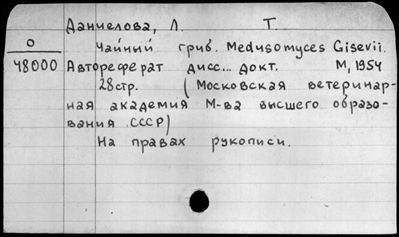 Даниелова, Л. Т.
О Чайный гриб. Medusomyces Gisevii.
48000 Автореферат дисс... докт. М, 1954
28стр. (Московская ветеринар-
ная академия М-ва высшего образо-
вания СССР)
На правах рукописи.